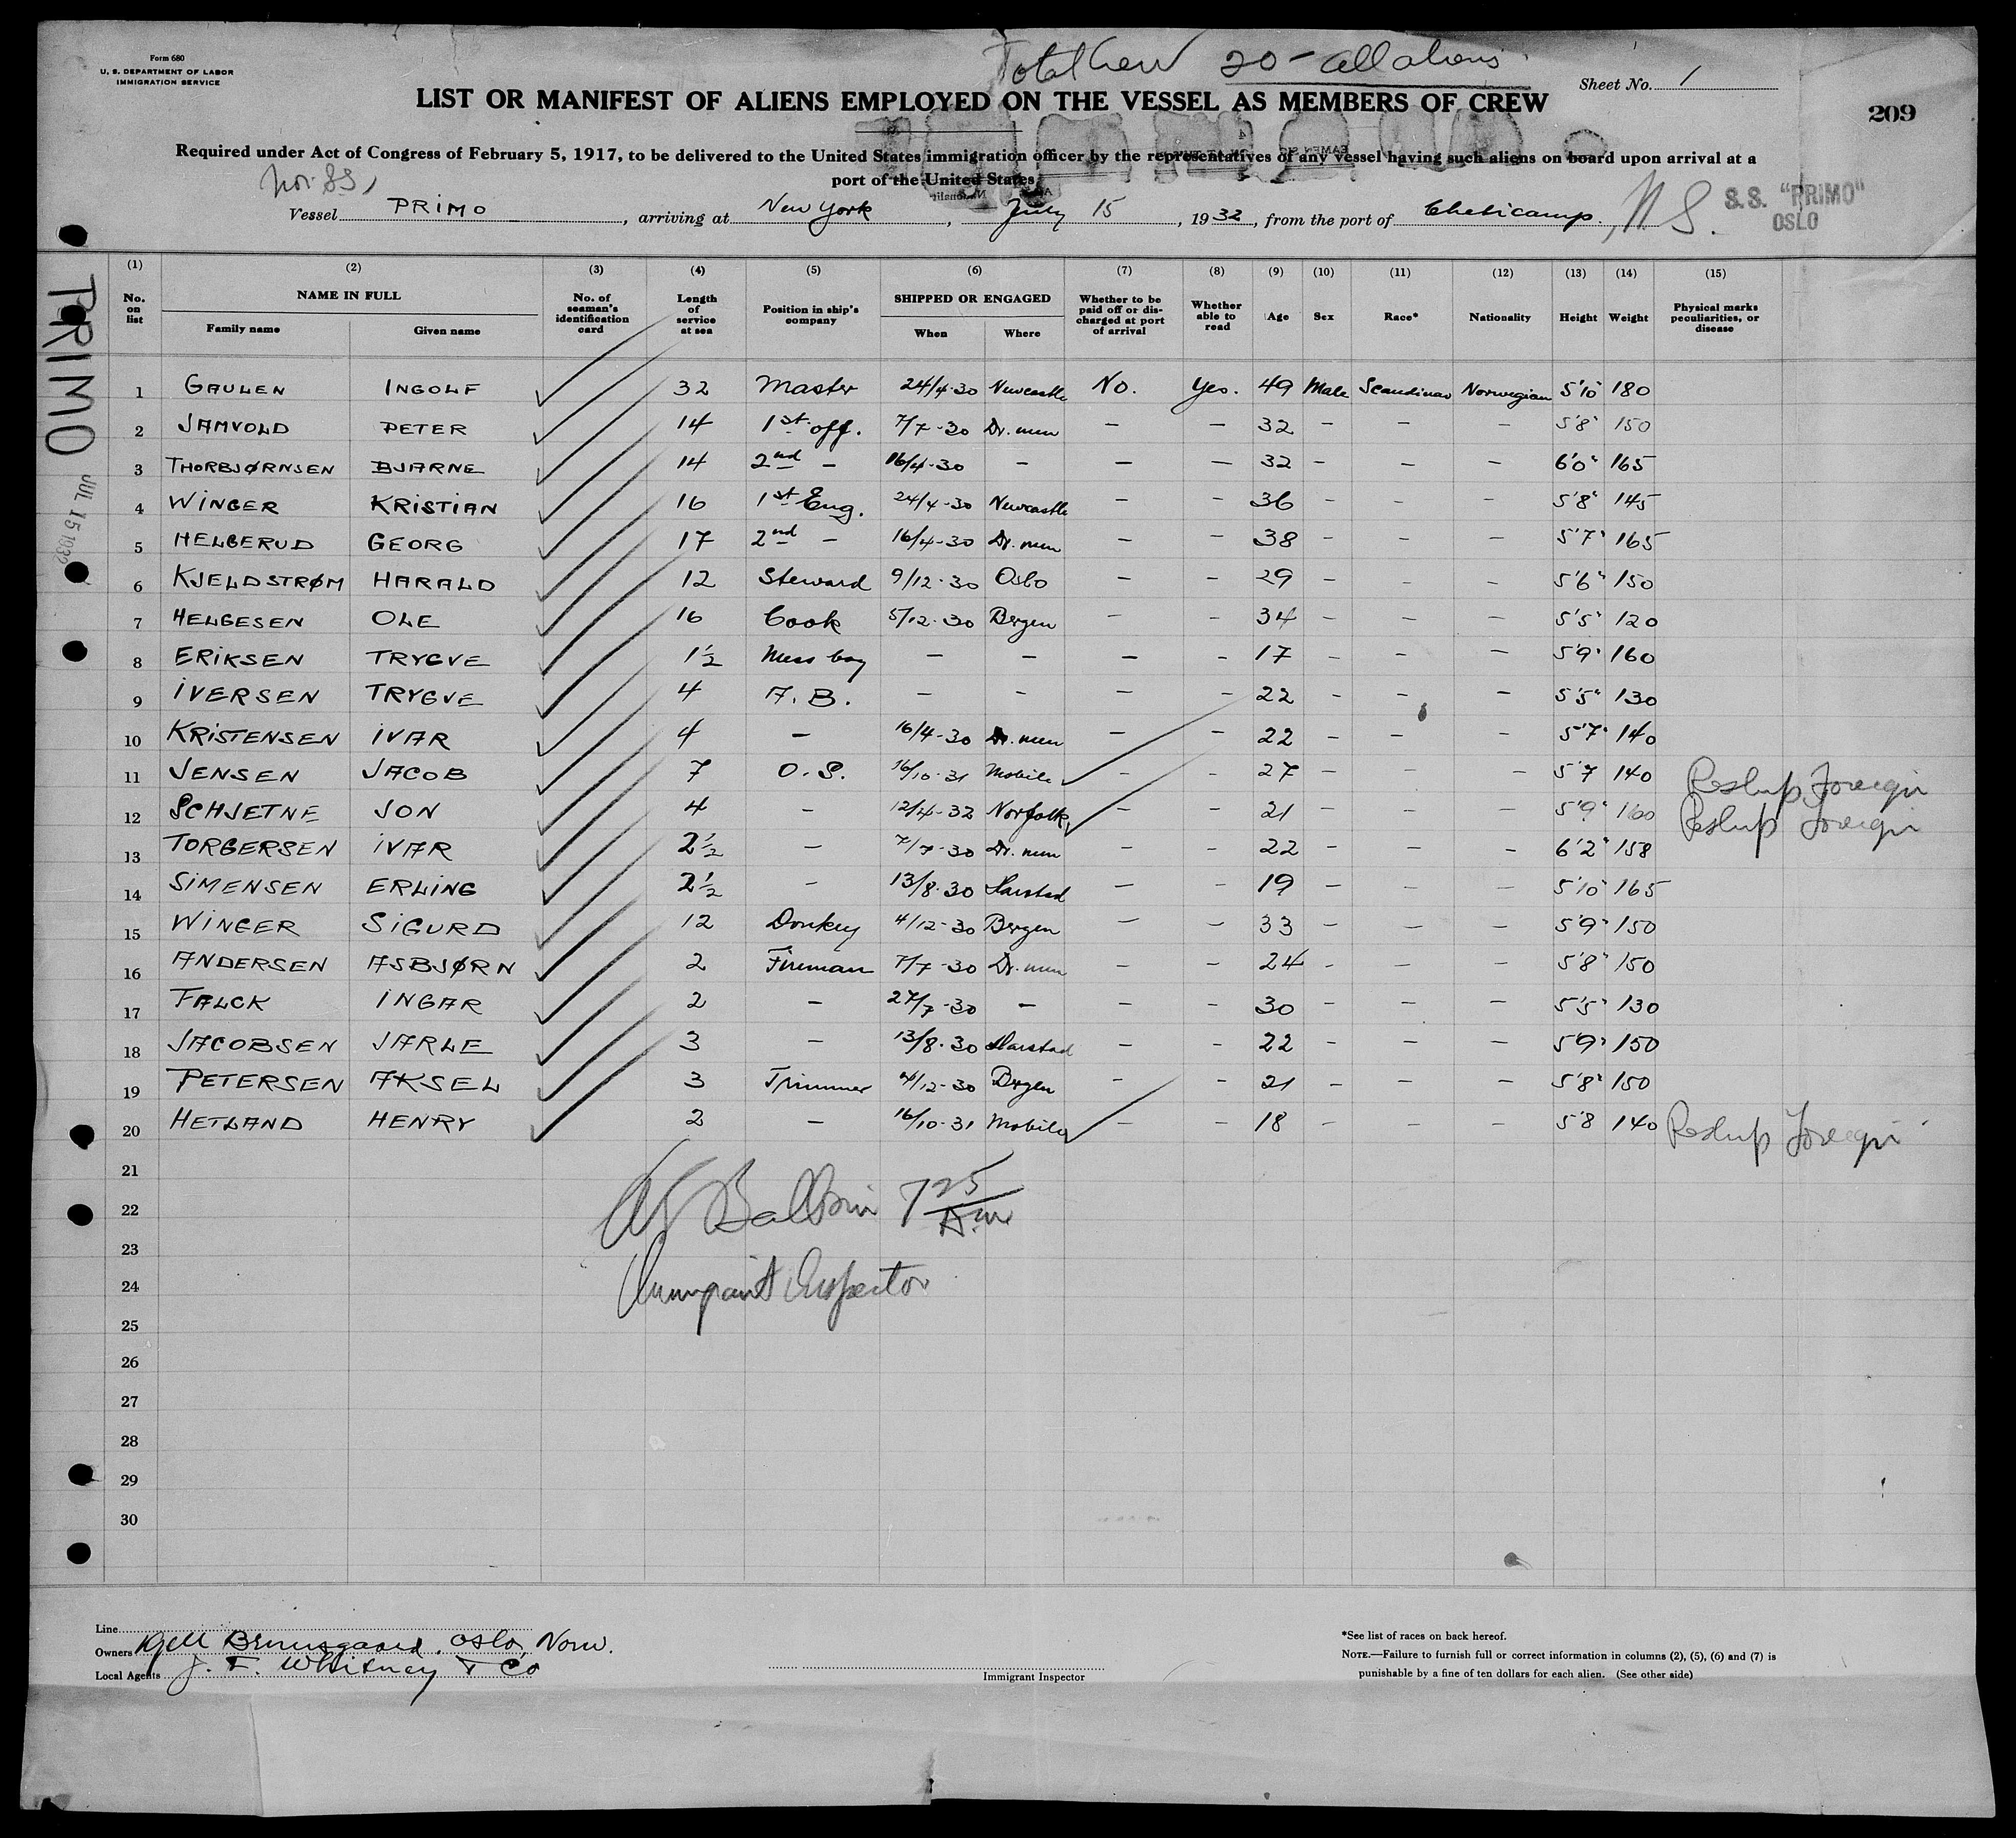 Form 680
U. S. DEPARTMENT OF LABOR
IMMIGRATION SERVICE
Total Crew 20 - all aliens
Sheet No. 1
LIST OR MANIFEST OF ALIENS EMPLOYED ON THE VESSEL AS MEMBERS OF CREW
209
Required under Act of Congress of February 5, 1917, to be delivered to the United States immigration officer by the representatives of any vessel having such aliens on board upon arrival at a
port of the United States
Nor. SS,
Vessel PRIMO, arriving at New York, July 15, 1932, from the port of Cheticamp, N.S.
S.S. "PRIMO"
OSLO
PRIMO
JUL 15 1932
(1) (2) (3) (4) (5) (6) (7) (8) (9) (10) (11) (12) (13) (14) (15)
No. on list NAME IN FULL Family name Given name No. of seaman's identification card Length of service at sea Position in ship's company SHIPPED OR ENGAGED When Where Whether to be paid off or discharged at port of arrival Whether able to read Age Sex Race* Nationality Height Weight Physical marks peculiarities, or disease
1 GAULEN INGOLF 32 Master 24/4-30 Newcastle No. Yes. 49 Male Scandinav Norwegian 5'10" 180
2 JAMVOLD PETER 14 1st off. 7/7-30 Dr. men - - 32 - - - 5'8" 150
3 THORBJØRNSEN BJARNE 14 2nd - 16/4-30 - - - 32 - - - 6'0" 165
4 WINGER KRISTIAN 16 1st Eng. 24/4-30 Newcastle - - 36 - - - 5'8" 145
5 HELGERUD GEORG 17 2nd - 16/4-30 Dr. men - - 38 - - - 5'7" 165
6 KJELDSTRØM HARALD 12 Steward 9/12-30 Oslo - - 29 - - - 5'6" 150
7 HELGESEN OLE 16 Cook 5/12-30 Bergen - - 34 - - - 5'5" 120
8 ERIKSEN TRYGVE 1½ Mess boy - - - - 17 - - - 5'9" 160
9 IVERSEN TRYGVE 4 A.B. - - - - 22 - - - 5'5" 130
10 KRISTENSEN IVAR 4 - 16/4-30 Dr. men - - 22 - - - 5'7" 140
11 JENSEN JACOB 7 O.S. 16/10-31 Mobile - - 27 - - - 5'7 140 Reship Foreign
12 SCHJETNE JON 4 - 12/4-32 Norfolk - - 21 - - - 5'9" 160 Reship Foreign
13 TORGERSEN IVAR 2½ - 7/7-30 Dr. men - - 22 - - - 6'2" 158
14 SIMENSEN ERLING 2½ - 13/8-30 Harstad - - 19 - - - 5'10" 165
15 WINGER SIGURD 12 Donkey 4/12-30 Bergen - - 33 - - - 5'9" 150
16 ANDERSEN ASBJØRN 2 Fireman 7/7-30 Dr. men - - 24 - - - 5'8" 150
17 FALCK INGAR 2 - 27/7-30 - - - 30 - - - 5'5" 130
18 JACOBSEN JARLE 3 - 13/8-30 Harstad - - 22 - - - 5'9" 150
19 PETERSEN AKSEL 3 Trimmer 4/12-30 Bergen - - 21 - - - 5'8" 150
20 HETLAND HENRY 2 - 16/10-31 Mobile - - 18 - - - 5'8 140 Reship Foreign
21
22
Baldwin 7 25
23
24
Immigrant Inspector
25
26
27
28
29
30
Line
Owners Kjell Bruusgaard, Oslo, Norw.
Local Agents J. F. Whitney & Co
Immigrant Inspector
*See list of races on back hereof.
NOTE.—Failure to furnish full or correct information in columns (2), (5), (6) and (7) is
punishable by a fine of ten dollars for each alien. (See other side)